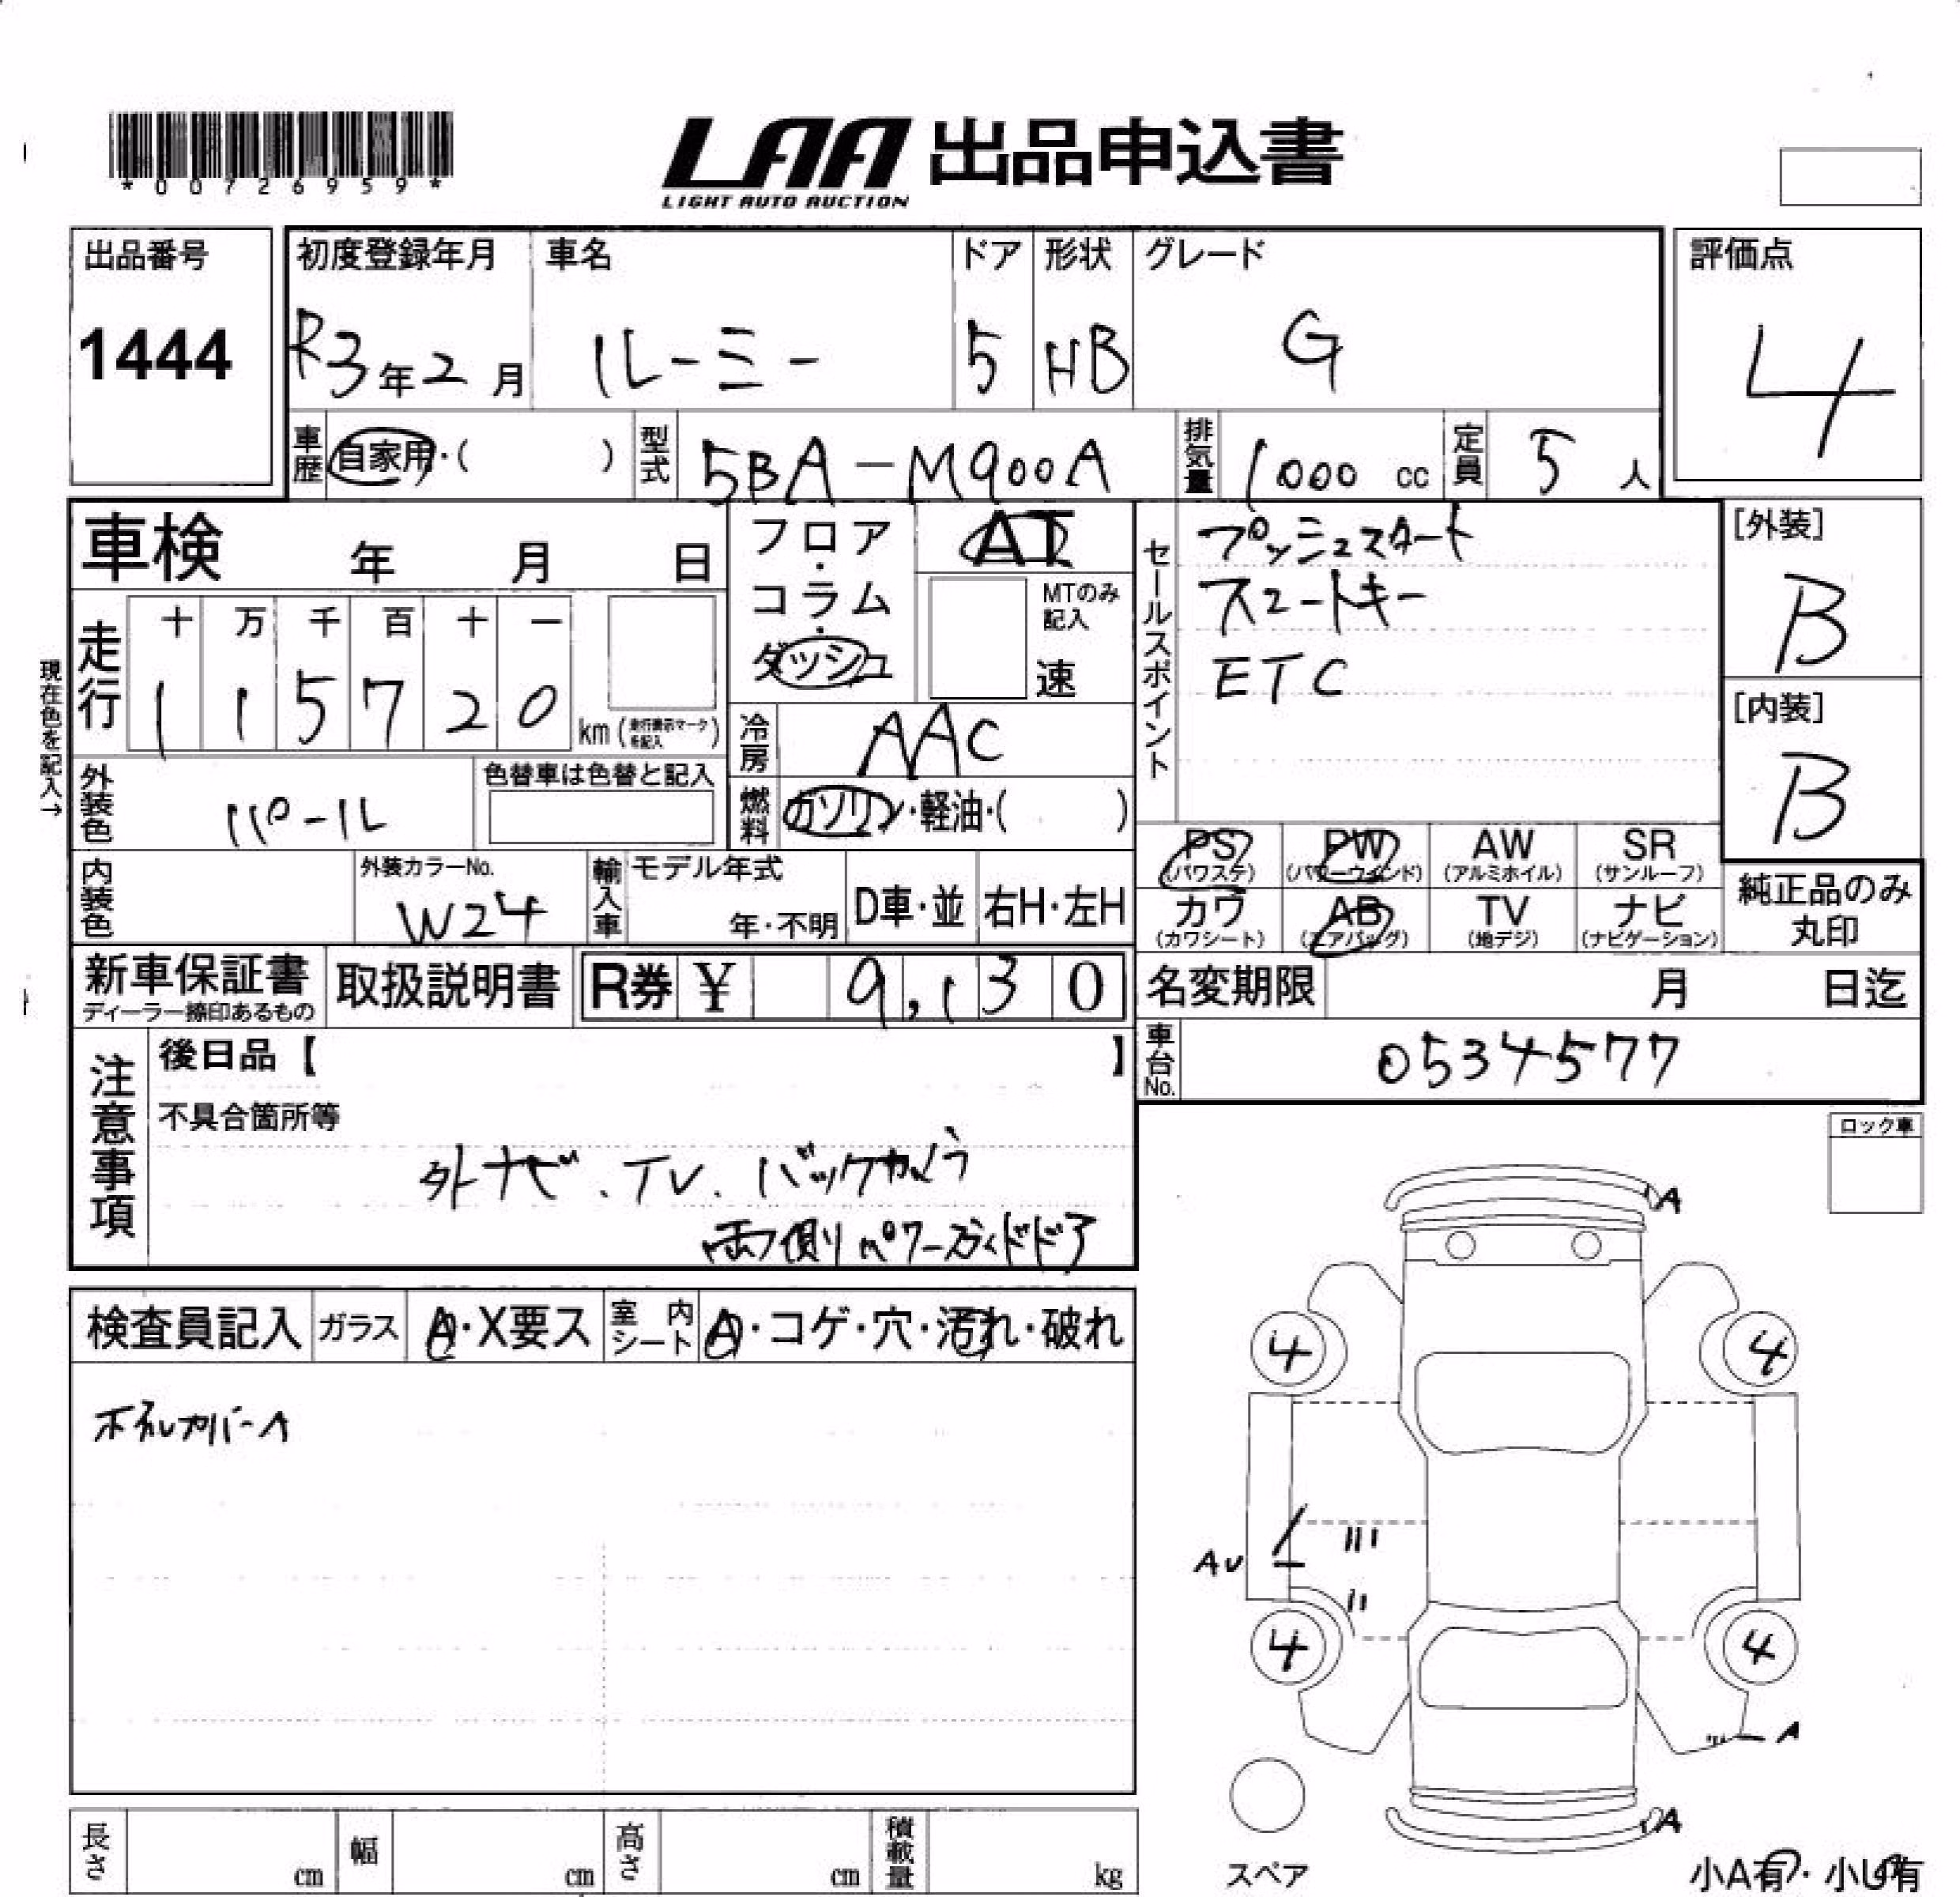 *00726959*
LAA 出品申込書
LIGHT AUTO AUCTION
出品番号 初度登録年月 車名 ドア 形状 グレード 評価点
1444 R3年2月 ルーミー 5 HB G 4
車歴 自家用・( ) 型式 5BA-M900A 排気量 1000 cc 定員 5 人
車検 年 月 日
フロア・コラム・ダッシュ
AT
MTのみ記入
速
セールスポイント
プッシュスタート
スマートキー
ETC
[外装]
B
[内装]
B
現在色を記入→
走行 十 万 千 百 十 一
1 1 5 7 2 0 km
冷房 AAC
外装色 パール 色替車は色替と記入
燃料 ガソリン・軽油・( )
PS (パワステ) PW (パワーウィンド) AW (アルミホイル) SR (サンルーフ)
カワ (カワシート) AB (エアバッグ) TV (地デジ) ナビ (ナビゲーション)
純正品のみ丸印
内装色 外装カラーNo. W24 輸入車 モデル年式 年・不明 D車・並 右H・左H
新車保証書 ディーラー捺印あるもの 取扱説明書 R券 ¥ 9,130
名変期限 月 日迄
車台No. 0534577
注意事項 後日品【 】
不具合箇所等
外ナビ、TV、バックカメラ
両側パワースライドドア
ロック車
A
検査員記入 ガラス A・X要ス 室内シート A・コゲ・穴・汚れ・破れ
4 4
AU
4 4
A
A
スペア
小A有・小U有
長さ cm 幅 cm 高さ cm 積載量 kg